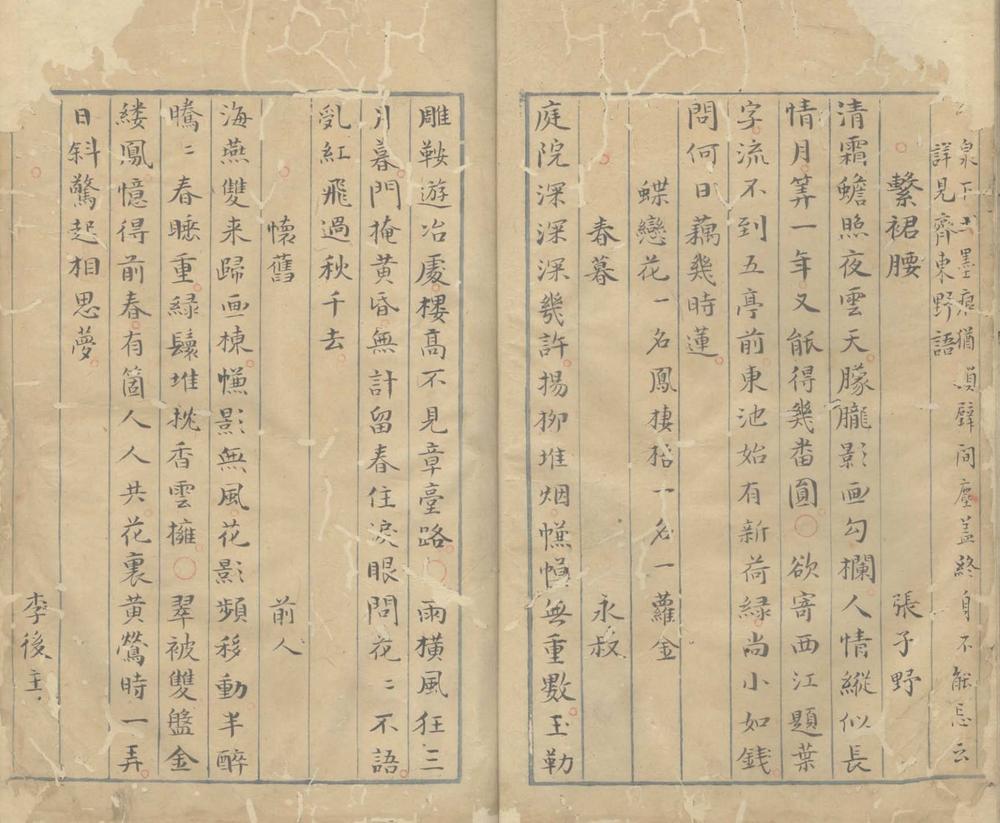 泉下土墨痕猶
詳見齊東野語
壁間塵蓋終身不能忘云
繫裙腰　張子野
清霜蟾照夜雲天朦朧影画勾欄人情縱似長
情月筭一年又能得幾畨圓○欲寄西江題葉
字流不到五亭前東池始有新荷緑尚小如錢
問何日藕幾時蓮
蝶戀花一名鳳棲梧一名一蘿金
春暮　永叔
庭院深深深幾許揚柳堆烟㡘幙無重數玉勒
雕鞍遊冶處樓髙不見章臺路○雨橫風狂三
月暮門掩黄昏無計留春住淚眼問花〻不語
乱紅飛過秋千去
懷舊　前人
海燕雙来歸画棟㡘影無風花影頻移動半醉
騰〻春睡重緑鬟堆枕香雲擁○翠被雙盤金
縷鳳憶得前春有箇人人共花裏黄鶯時一弄
日斜驚起相思夢
李後主